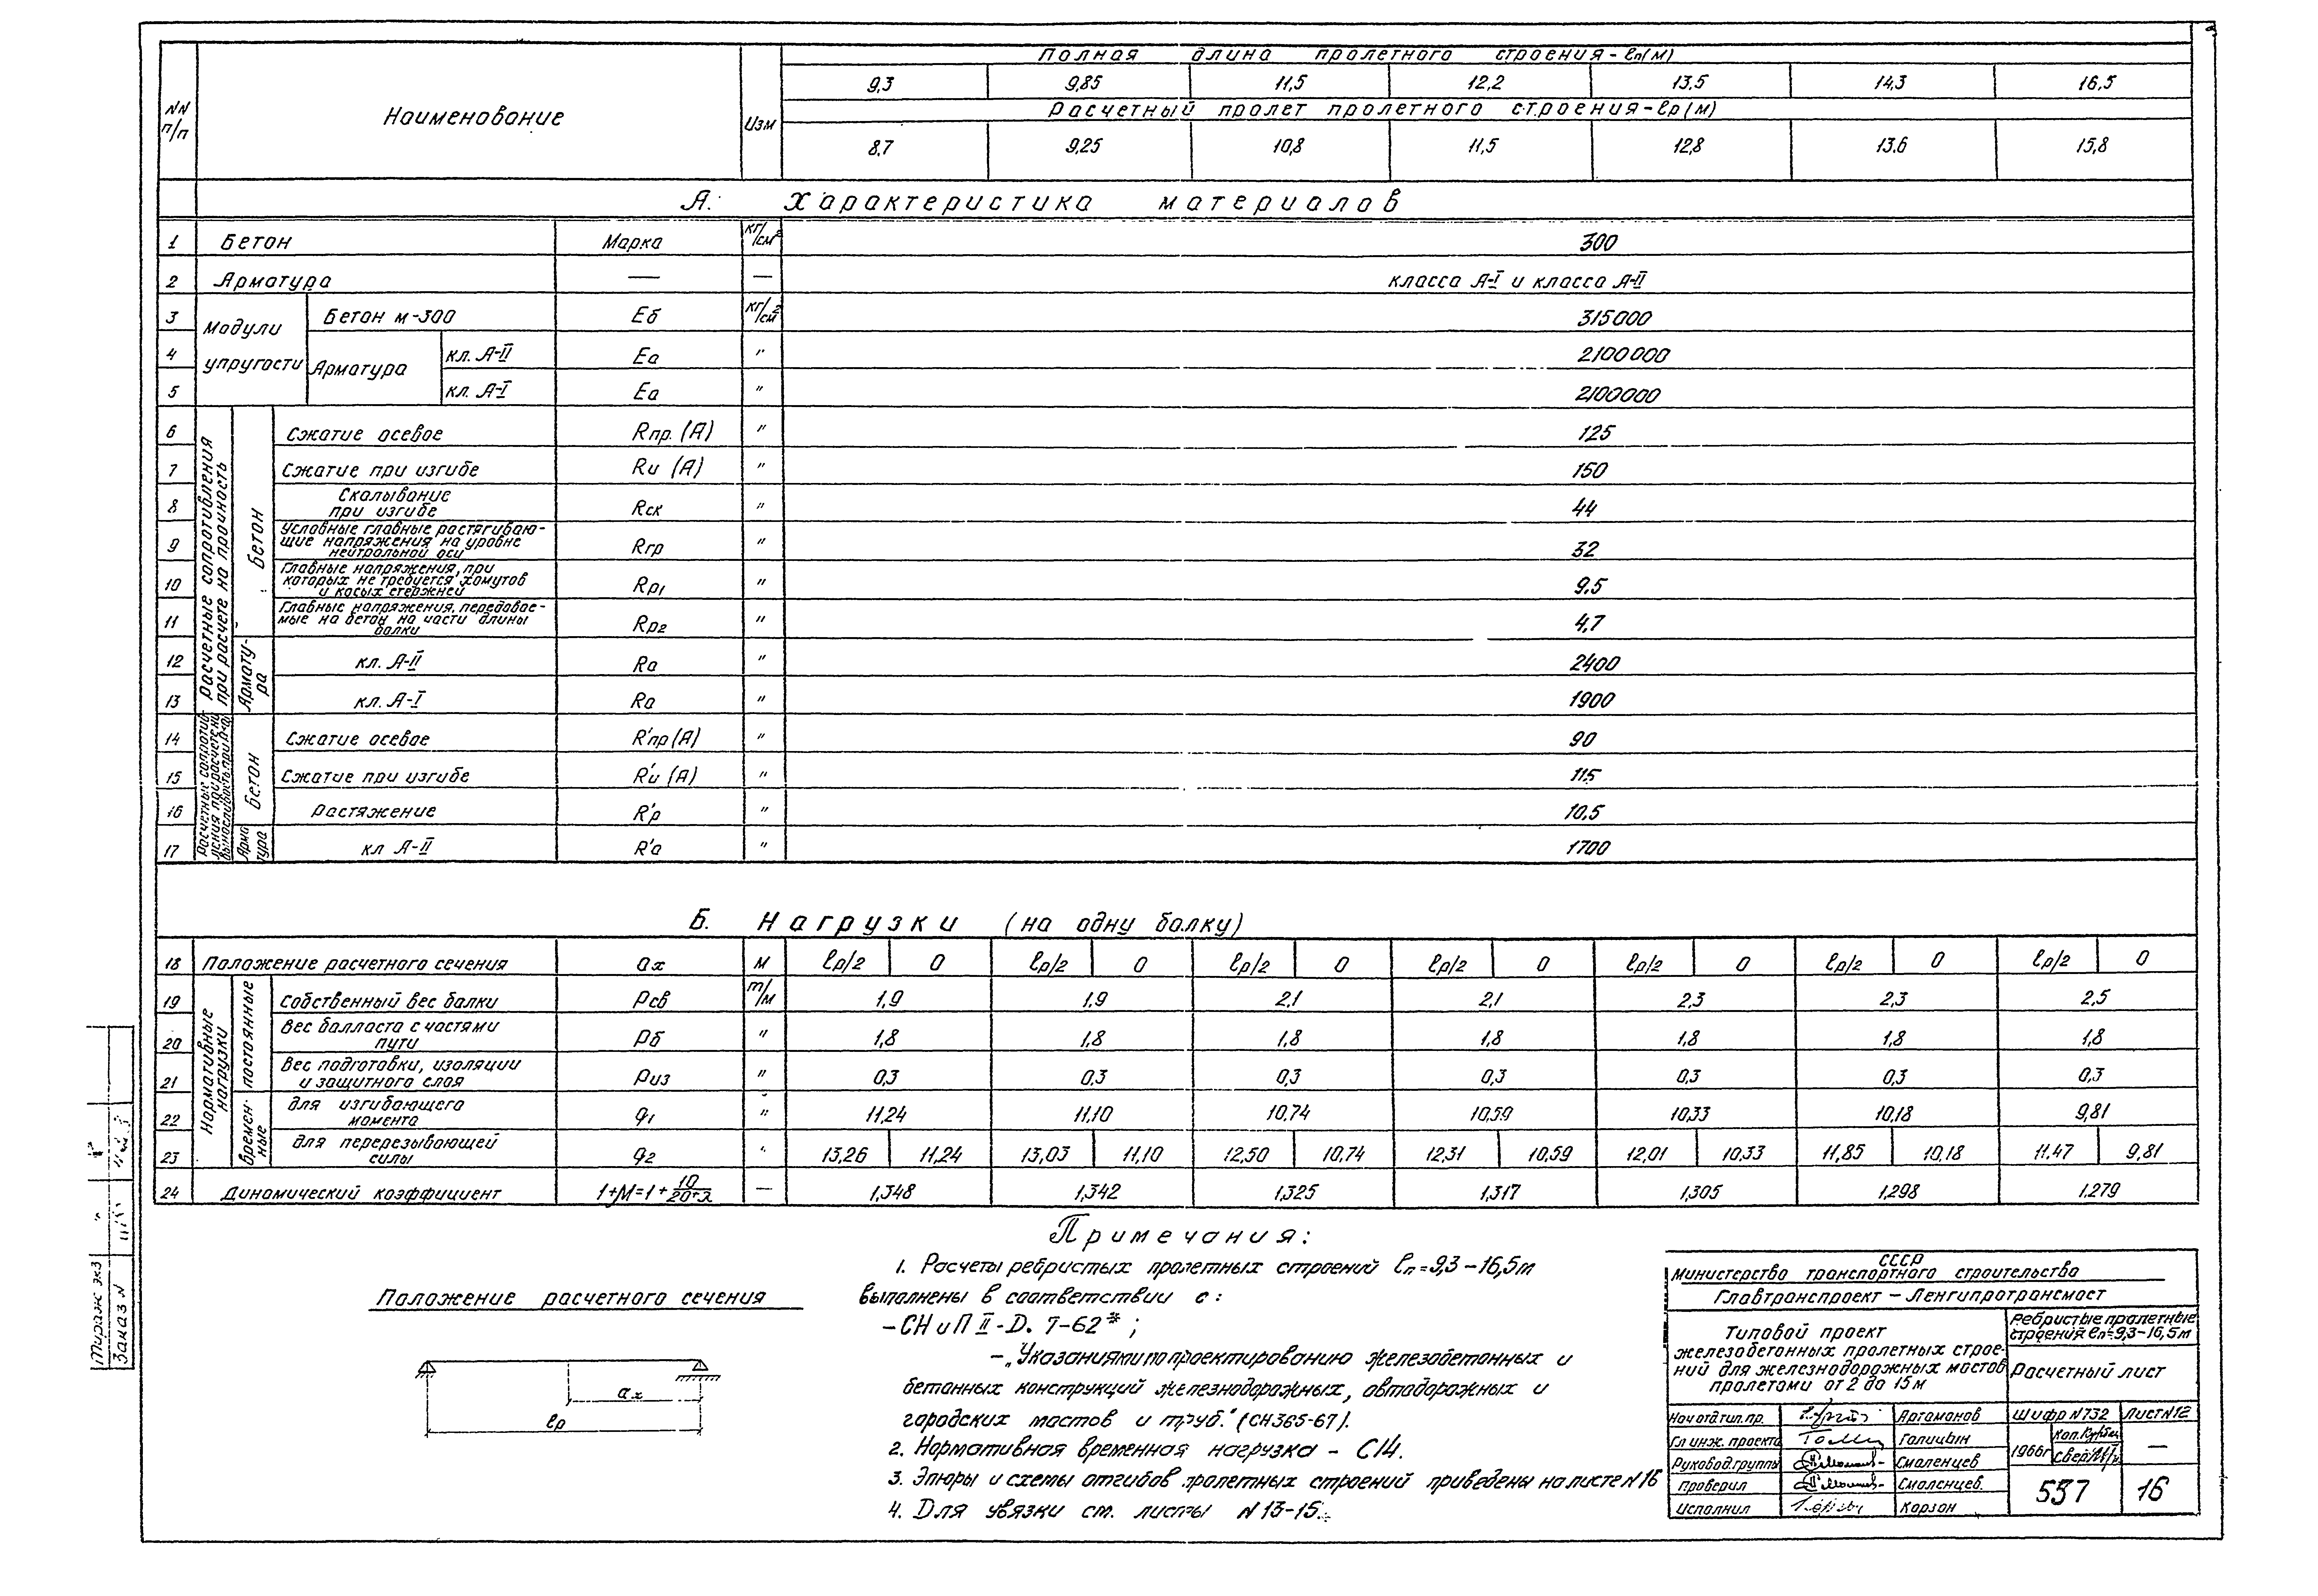 NN п/п
Наименование
Изм
Полная длина пролетного строения - ℓп(м)
9,3 9,85 11,5 12,2 13,5 14,3 16,5
Расчетный пролет пролетного строения - ℓр(м)
8,7 9,25 10,8 11,5 12,8 13.6 15,8
А. Характеристика материалов
1 Бетон Марка кг/см² 300
2 Арматура — — класса А-I и класса А-II
Модули упругости
3 Бетон м-300 Еб кг/см² 315000
Арматура
4 кл. А-II Еа " 2100000
5 кл. А-I Еа " 2100000
Расчетные сопротивления при расчете на прочность
Бетон
6 Сжатие осевое Rпр. (А) " 125
7 Сжатие при изгибе Rи (А) " 150
8 Скалывание при изгибе Rск " 44
9 Условные главные растягиваю-
щие напряжения на уровне
нейтральной оси Rгр " 32
10 Главные напряжения, при
которых не требуется хомутов
и косых стержней Rр1 " 9,5
11 Главные напряжения, передавае-
мые на бетон на части длины
балки Rр2 " 4,7
Армату-
ра
12 кл. А-II Rа " 2400
13 кл. А-I Rа " 1900
Бетон
14 Сжатие осевое R'пр (А) " 90
15 Сжатие при изгибе R'и (А) " 115
16 Растяжение R'р " 10,5
Арма
тура
17 кл А-II R'а " 1700
Б. Нагрузки (на одну балку)
18 Положение расчетного сечения ах м ℓр/2 0 ℓр/2 0 ℓр/2 0 ℓр/2 0 ℓр/2 0 ℓр/2 0 ℓр/2 0
Нормативные нагрузки
постоянные
19 Собственный вес балки Рсв т/м 1,9 1,9 2,1 2,1 2,3 2,3 2,5
20 Вес балласта с частями
пути Рб " 1,8 1,8 1,8 1,8 1,8 1,8 1,8
21 Вес подготовки, изоляции
и защитного слоя Риз " 0,3 0,3 0,3 0,3 0,3 0,3 0,3
времен-
ные
22 для изгибающего
момента q1 " 11,24 11,10 10,74 10,59 10,33 10,18 9,81
23 для перерезывающей
силы q2 " 13,26 11,24 13,03 11,10 12,50 10,74 12,31 10,59 12,01 10,33 11,85 10,18 11,47 9,81
24 Динамический коэффициент 1+М=1+10/20+λ — 1,348 1,342 1,325 1,317 1,305 1,298 1,279
Положение расчетного сечения
ах
ℓр
Примечания:
1. Расчеты ребристых пролетных строений ℓп=9,3-16,5м
выполнены в соответствии с:
- СНиП II-Д. 7-62*;
- „Указаниями по проектированию железобетонных и
бетонных конструкций железнодорожных, автодорожных и
городских мостов и труб." (СН365-67).
2. Нормативная временная нагрузка - С14.
3. Эпюры и схемы отгибов пролетных строений приведены на листе N16
4. Для увязки см. листы N 13-15.
СССР
Министерство транспортного строительства
Главтранспроект - Ленгипротрансмост
Типовой проект
железобетонных пролетных строе-
ний для железнодорожных мостов
пролетами от 2 до 15м
Ребристые пролетные
строения ℓп=9,3-16,5м
Расчетный лист
Нач отд.тип.пр. Артамонов Шифр N732 Лист N12
Гл инж. проекта Голицын 1966г —
Руковод.группы Смоленцев
Проверил Смоленцев 557 16
Исполнил Корзон
Тираж экз
Заказ N